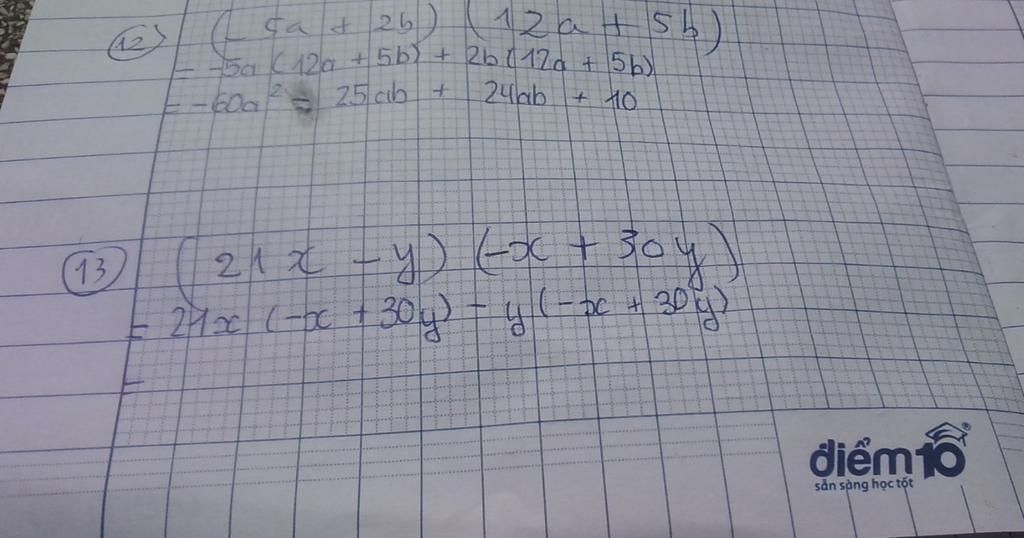 12) (-5a + 2b) (12a + 5b)
= -5a (12a + 5b) + 2b (12a + 5b)
= -60a² - 25ab + 24ab + 10
13 (21x - y) (-x + 30y)
= 21x (-x + 30y) - y (-x + 30y)
=
điểm10®
sẵn sàng học tốt